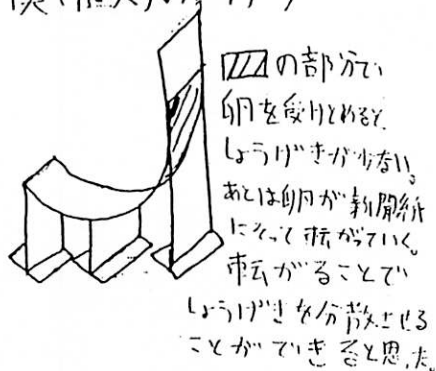 の部分で
卵を受けとめると、
しょうげきが少ない。
あとは卵が新聞紙
にそって転がっていく。
転がることで
しょうげきを分散させる
ことができると思った。